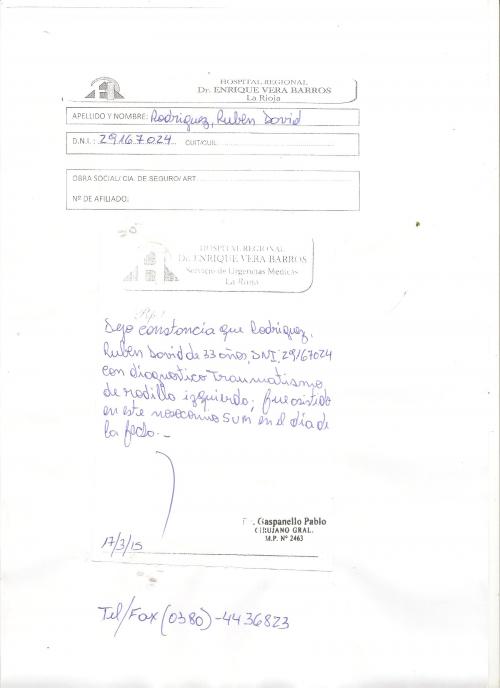 HOSPITAL REGIONAL
Dr. ENRIQUE VERA BARROS
La Rioja
APELLIDO Y NOMBRE: Rodriguez, Ruben David
D.N.I.: 29167024 CUIT/CUIL
OBRA SOCIAL/ CIA. DE SEGURO/ ART
Nº DE AFILIADO:
HOSPITAL REGIONAL
Dr. ENRIQUE VERA BARROS
Servicio de Urgencias Medicas
La Rioja
Rp/
Dejo constancia que Rodriguez,
Ruben David de 33 años, DNI: 29167024
con diagnostico traumatismo
de rodilla izquierda; fue asistido
en este nosocomio SUM en el día de
la fecha.-
Gaspanello Pablo
CIRUJANO GRAL.
M.P. Nº 2463
17/3/15
Tel/Fax (0380)-4436823